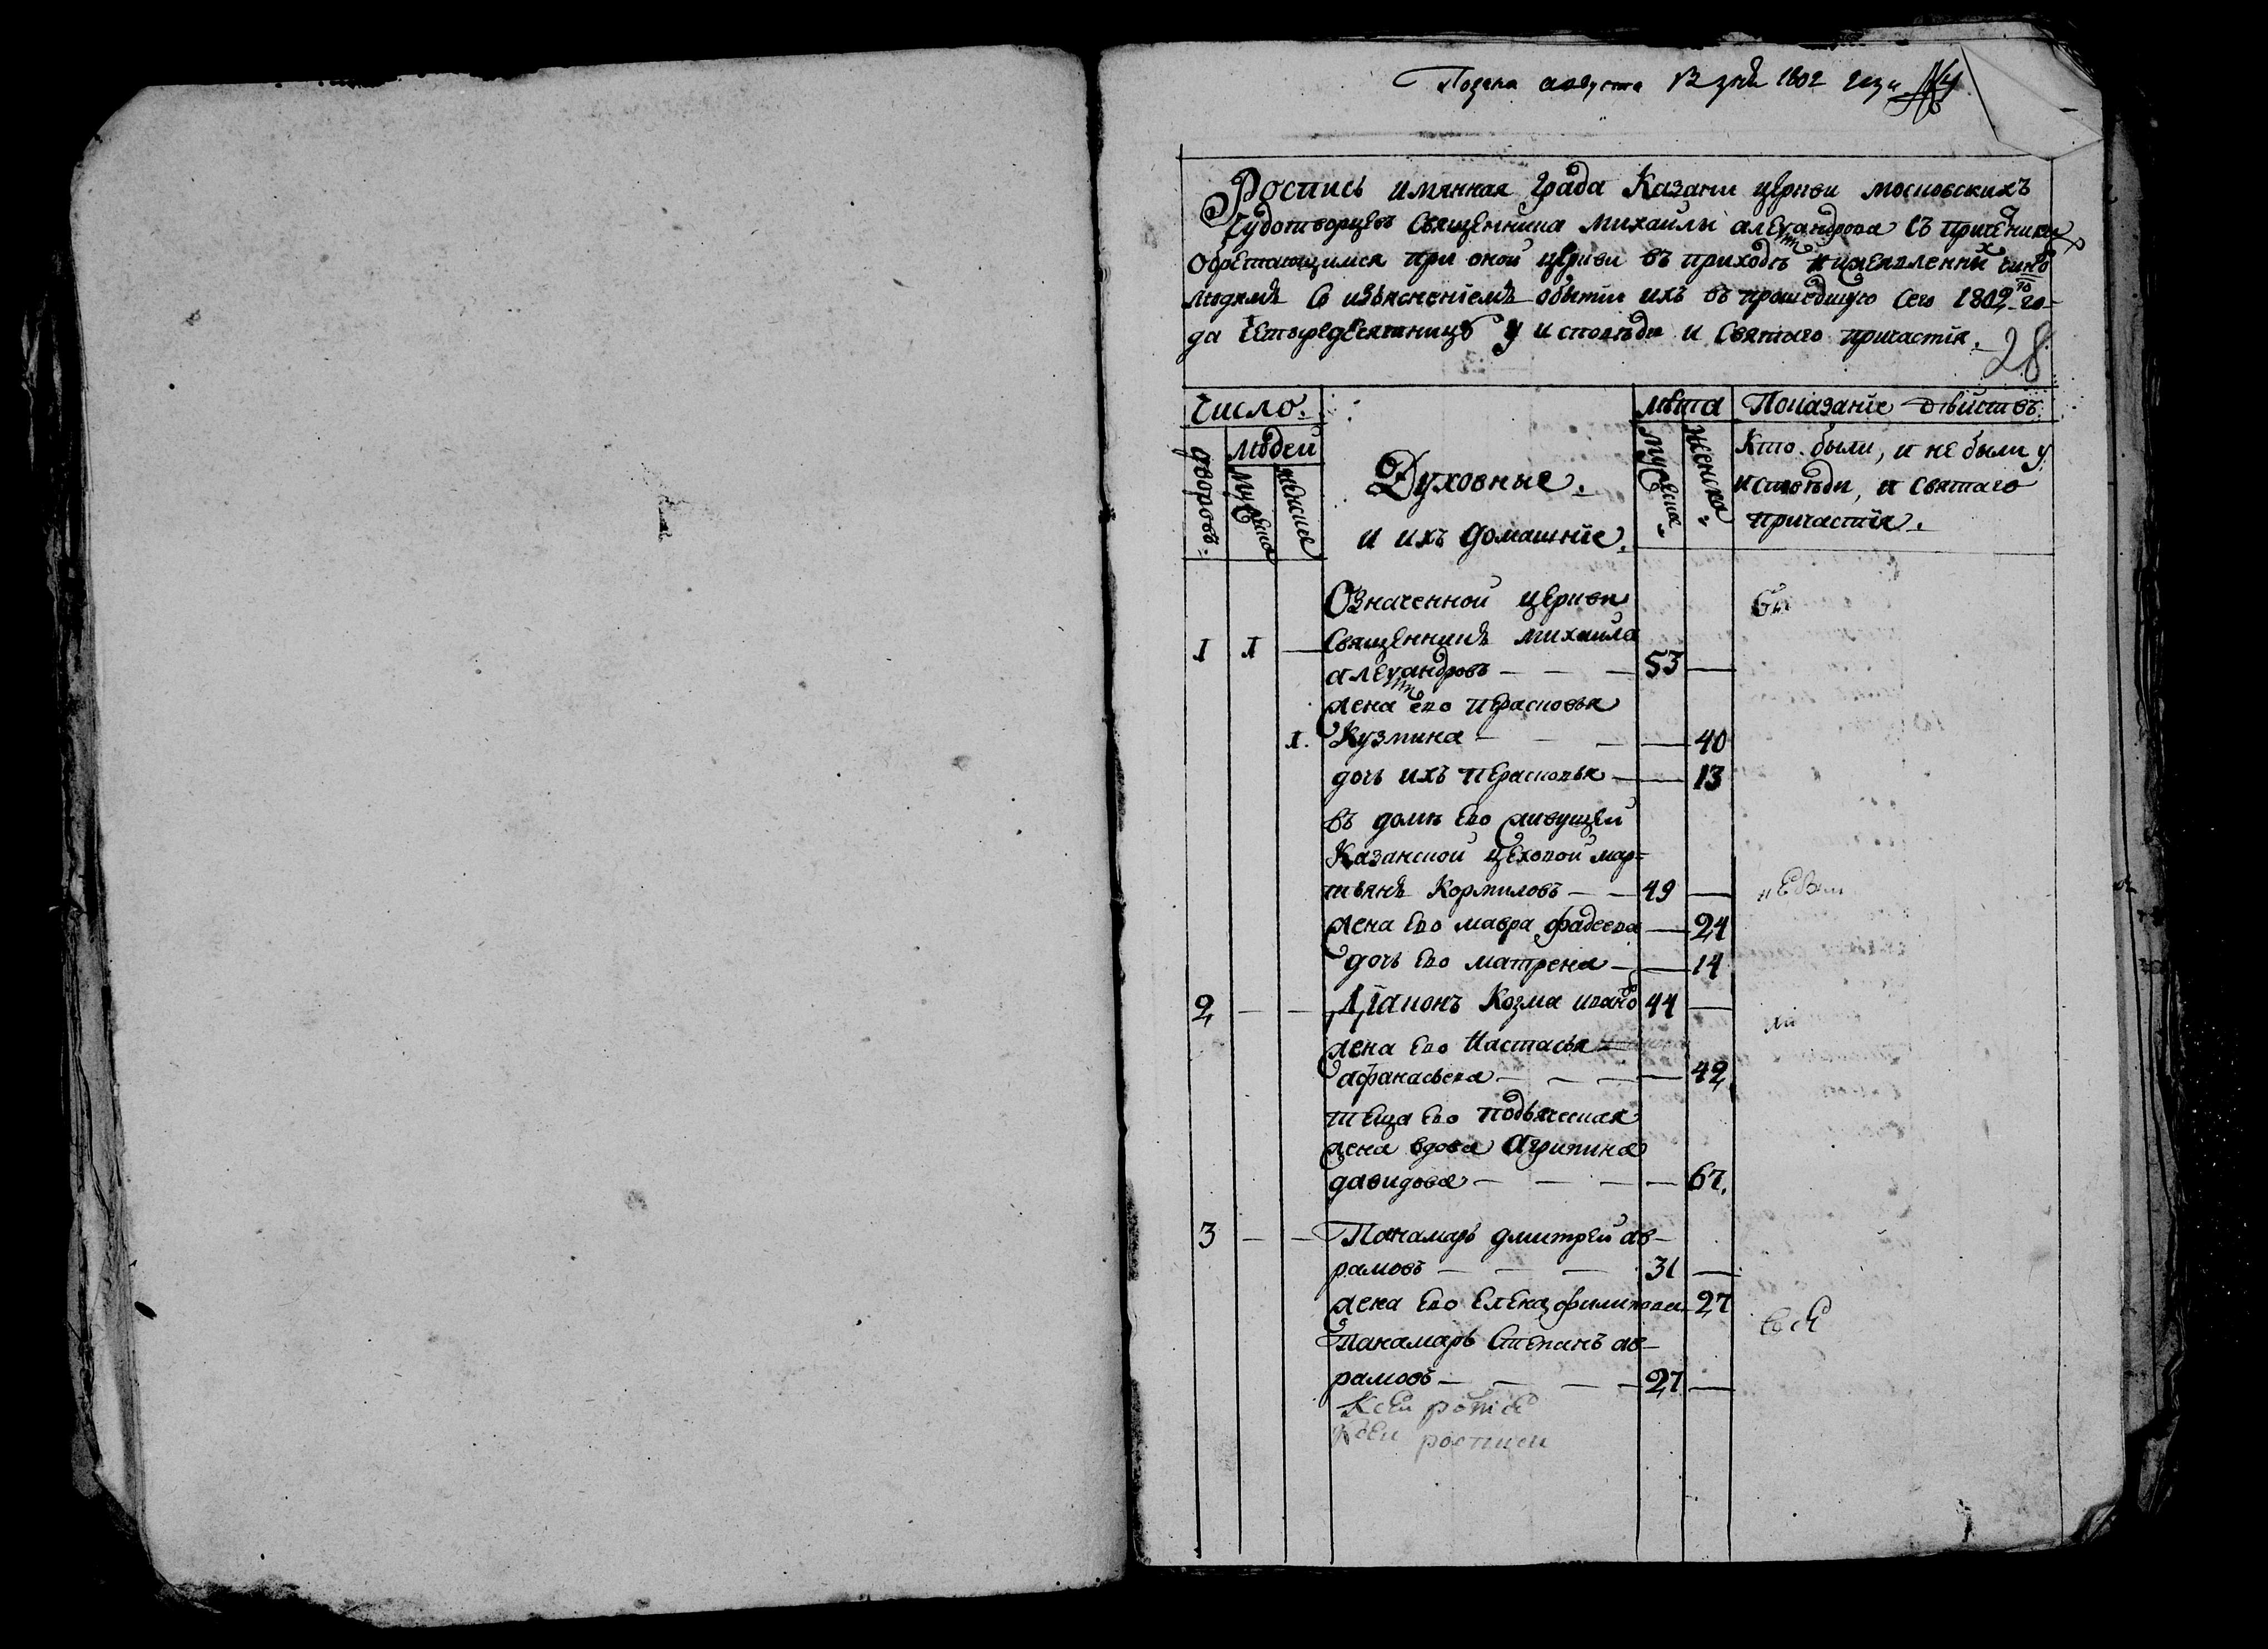 Подана августа 13 дня 1802 года
Роспись имянная града Казани церкви московскихъ
Чудотворцевъ священника михайлы алеѯандрова съ причетники
обретающимся при оной церкви въ приходѣ нижеявленныхъ чиновъ
людямъ со изъясненіемъ обытіи ихъ въ прошедшую сего 1802го го-
да четыредесятницу у исповѣди и святаго причастія.
28
Число.
лѣта
Показаніе дѣйствъ.
дворовъ.
людей
мужеска
женска
Духовные.
и ихъ домашніе.
мужеска
женска
Кто были, и не были у
исповѣди, и святаго
причастія.
Означенной церкви
1 1 — священникъ михайла
алеѯандровъ — — — 53 —
жена его парасковья
1. Кузмина — — — — 40
дочь ихъ парасковья — — 13
въ домѣ его живущей
Казанской цеховой мар-
тьянъ Кормиловъ — — 49 — небыл
жена его мавра фадеева — 24
дочь его матрена — — 14
2 — — Діаконъ Козма ивановъ 44 —
жена его Настасья
афанасьева — — — — 42
теща его подьяческая
жена вдова Агрипина
давидова — — — — 67.
3 — — Панамарь дмитрей ав-
рамовъ — — — 31 —
жена его Елена филипова 27
Панамарь Степанъ ав-
рамовъ — — — 27 —
Ксей
Ксей росписи